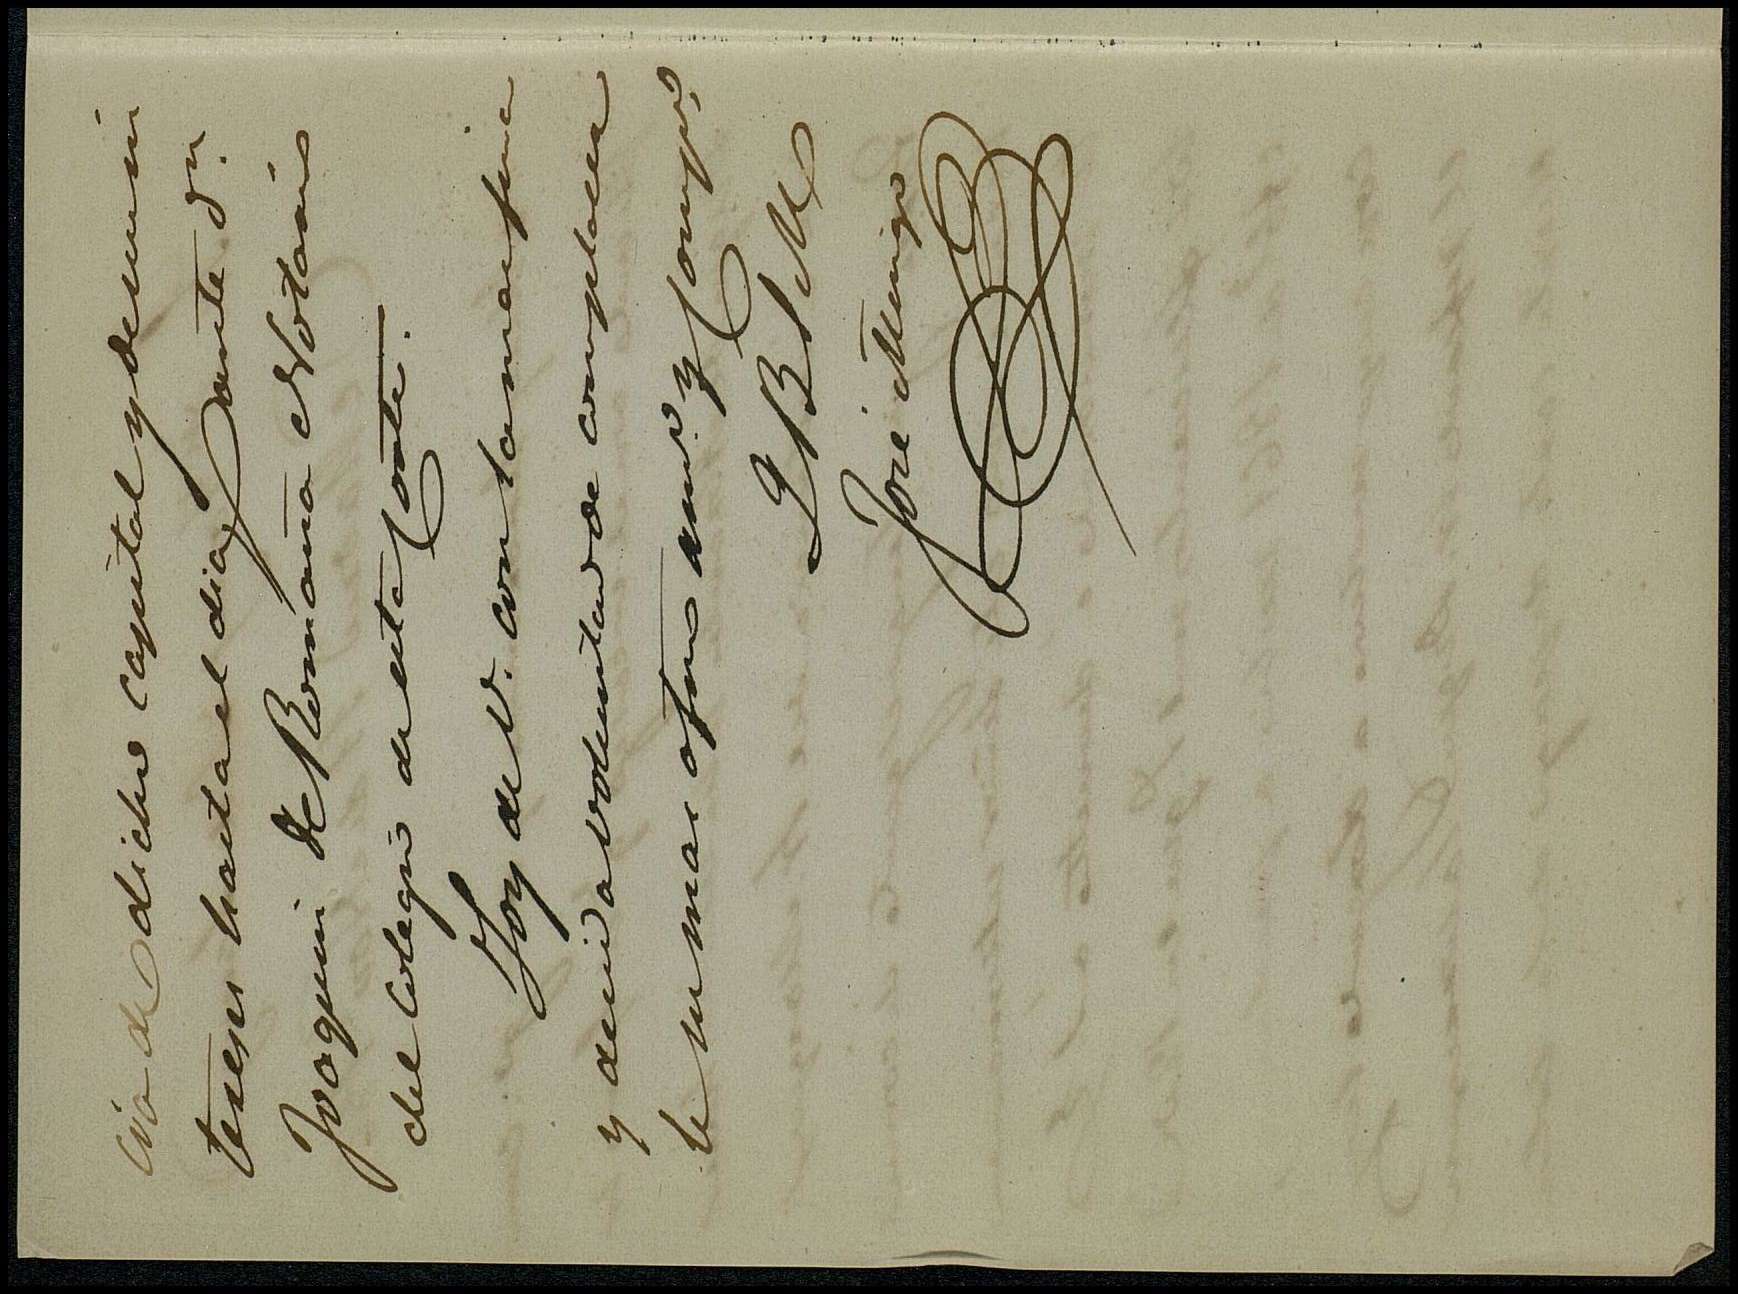 cio de dicho capital y de su in
teres hasta el dia, ante Dn.
Joaquin de Romaña Notario
del Colegio de esta Corte.
Soy de V. con la mas fina
y decida voluntad de complacer
le su mas afmo amo. y Comp.
Q B S M
José Mengo